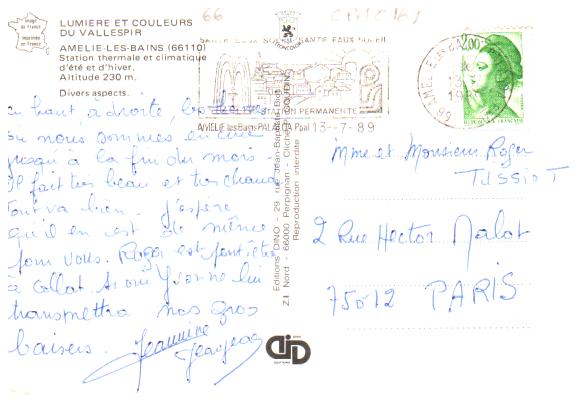 66
CPA C 161
image de France
imprimée en France
LUMIERE ET COULEURS
DU VALLESPIR
AMELIE-LES-BAINS (66110)
Station thermale et climatique
d'été et d'hiver.
Altitude 230 m.
Divers aspects.
STATION PERMANENTE
AMELIE les Bains PALALDA Ppal 13-7-89
2,00
REPUBLIQUE FRANÇAISE
en haut, à droite, les bains
où nous sommes en cure
jusqu'à la fin du mois
Il fait très beau et très chaud
Tout va bien. J'espère
qu'il en est de même
pour vous. Roger est
à Collot. si on Yvonne lui
transmettra nos gros
baisers. Jeannine
Georges
Editions DINO - 29, rue Jean-Baptiste-Biot
Z.I Nord - 66000 Perpignan - Clichés
Reproduction interdite
DINO
Mme et Monsieur Roger
TISSIOT
2 Rue Hector Malot
75012 PARIS